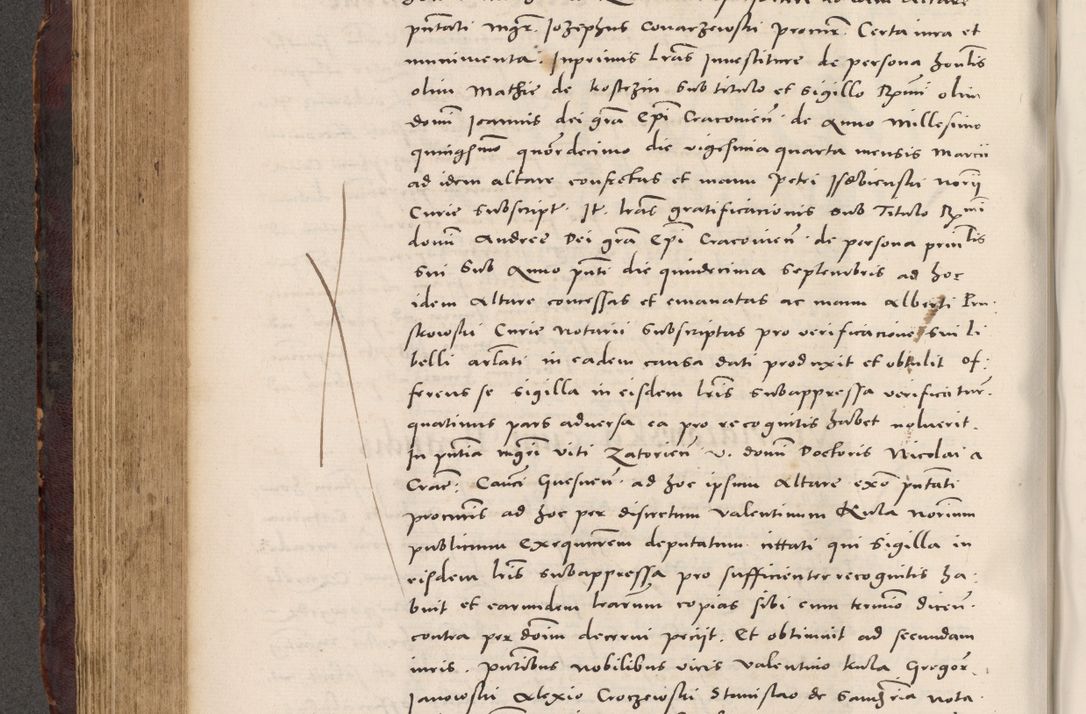 pntati mgr. Jozephus Conarzewski procur. Certa iura et
munimenta. Inprimis lras Investiture de persona honlis
olim Mathie de Kostzin sub titulo et sigillo Rmi olim
domi Joannis dei gra Epi Cracovien. de Anno Millesimo
quingsimo quordecimo die vigesima quarta mensis Marcii
ad idem altare confectas et manu Petri norii
Curie subscript. It. lras gratificacionis sub Titulo Rmi
domi Andree Dei gra Epi Cracovien. de persona prinlis
sui sub Anno pnti die quindecima Septembris ad hoc
idem Altare concessas et emanatas ac manu Alberti
skowski Curie Notarii subscriptas pro verificacione sui li
belli arlati in eadem causa dati produxit et obtulit of:
ferens se sigilla in eisdem lris subappressa verificatur.
quatinus pars adversa ea pro recognitis habet noluerit.
In pntia mgri Viti Zatorien. v. domi Doctoris Nicolai a
Crac: Canci Gnesnen. ad hoc ipsum Altare exo pntati
procuris ad hoc per discretum Valentinum Kula norium
publicum Exequcrem deputatum cittati qui sigilla in
eisdem lris subappressa pro sufficienter recognitis ha:
buit et earundem learum copias sibi cum termio dicen.
contra per doim decerni peciit. Et obtinuit ad secundam
iuris. Pntibus nobilibus viris Valentino Kula Gregor
Janowski Alexio Croczewski Stanislao de nota.